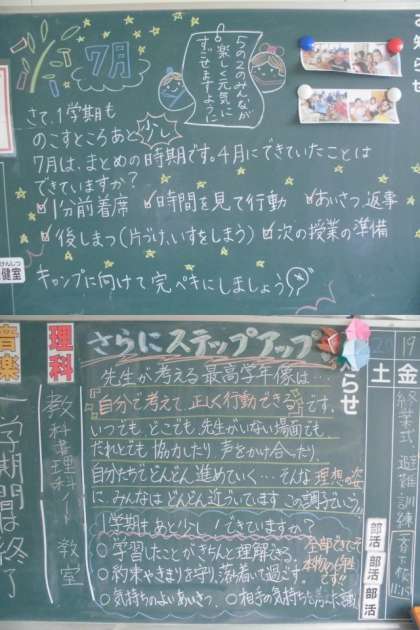 7月
5の2のみんなが
楽しく元気に
すごせますように
らせ
さて、1学期も
のこすところあと少し
7月は、まとめの時期です。4月にできていたことは
できていますか?
1分前着席 時間を見て行動 あいさつ、返事
後しまつ(片づけ、いすをしまう) 次の授業の準備
キャンプに向けて完ペキにしましょう
健室
音楽
一学期間は終了
理科
教科書理科ノート 教室
さらにステップアップ
先生が考える最高学年像は…
『自分で考えて、正しく行動できる』です。
いつでも どこでも 先生がいない場面でも、
だれとでも 協力したり 声をかけ合ったり、
自分たちでどんどん進めていく… そんな理想の姿
に、みんなはどんどん近づいています この調子でいこう!!
1学期もあと少し!できていますか?
○学習したことがきちんと理解できる。
○約束やきまりを守り、落ち着いて過ごす。
○気持ちのよいあいさつ ○相手の気持ち
全部できて
本物の
です!!
らせ
20 19
土 金
終業式 避難訓練 一斉下校 11:15
部活
部活
部活